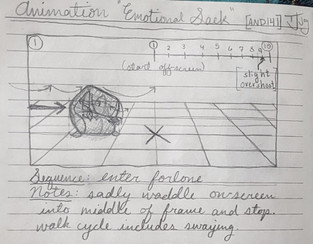 Animation "Emotional Sack" [AND141]
1
1 2 3 4 5 6 7 8 9 10
(start off-screen)
[slight overshoot]
Sequence: enter forlone
Notes: sadly waddle on-screen
into middle of frame and stop.
walk cycle includes swaying.